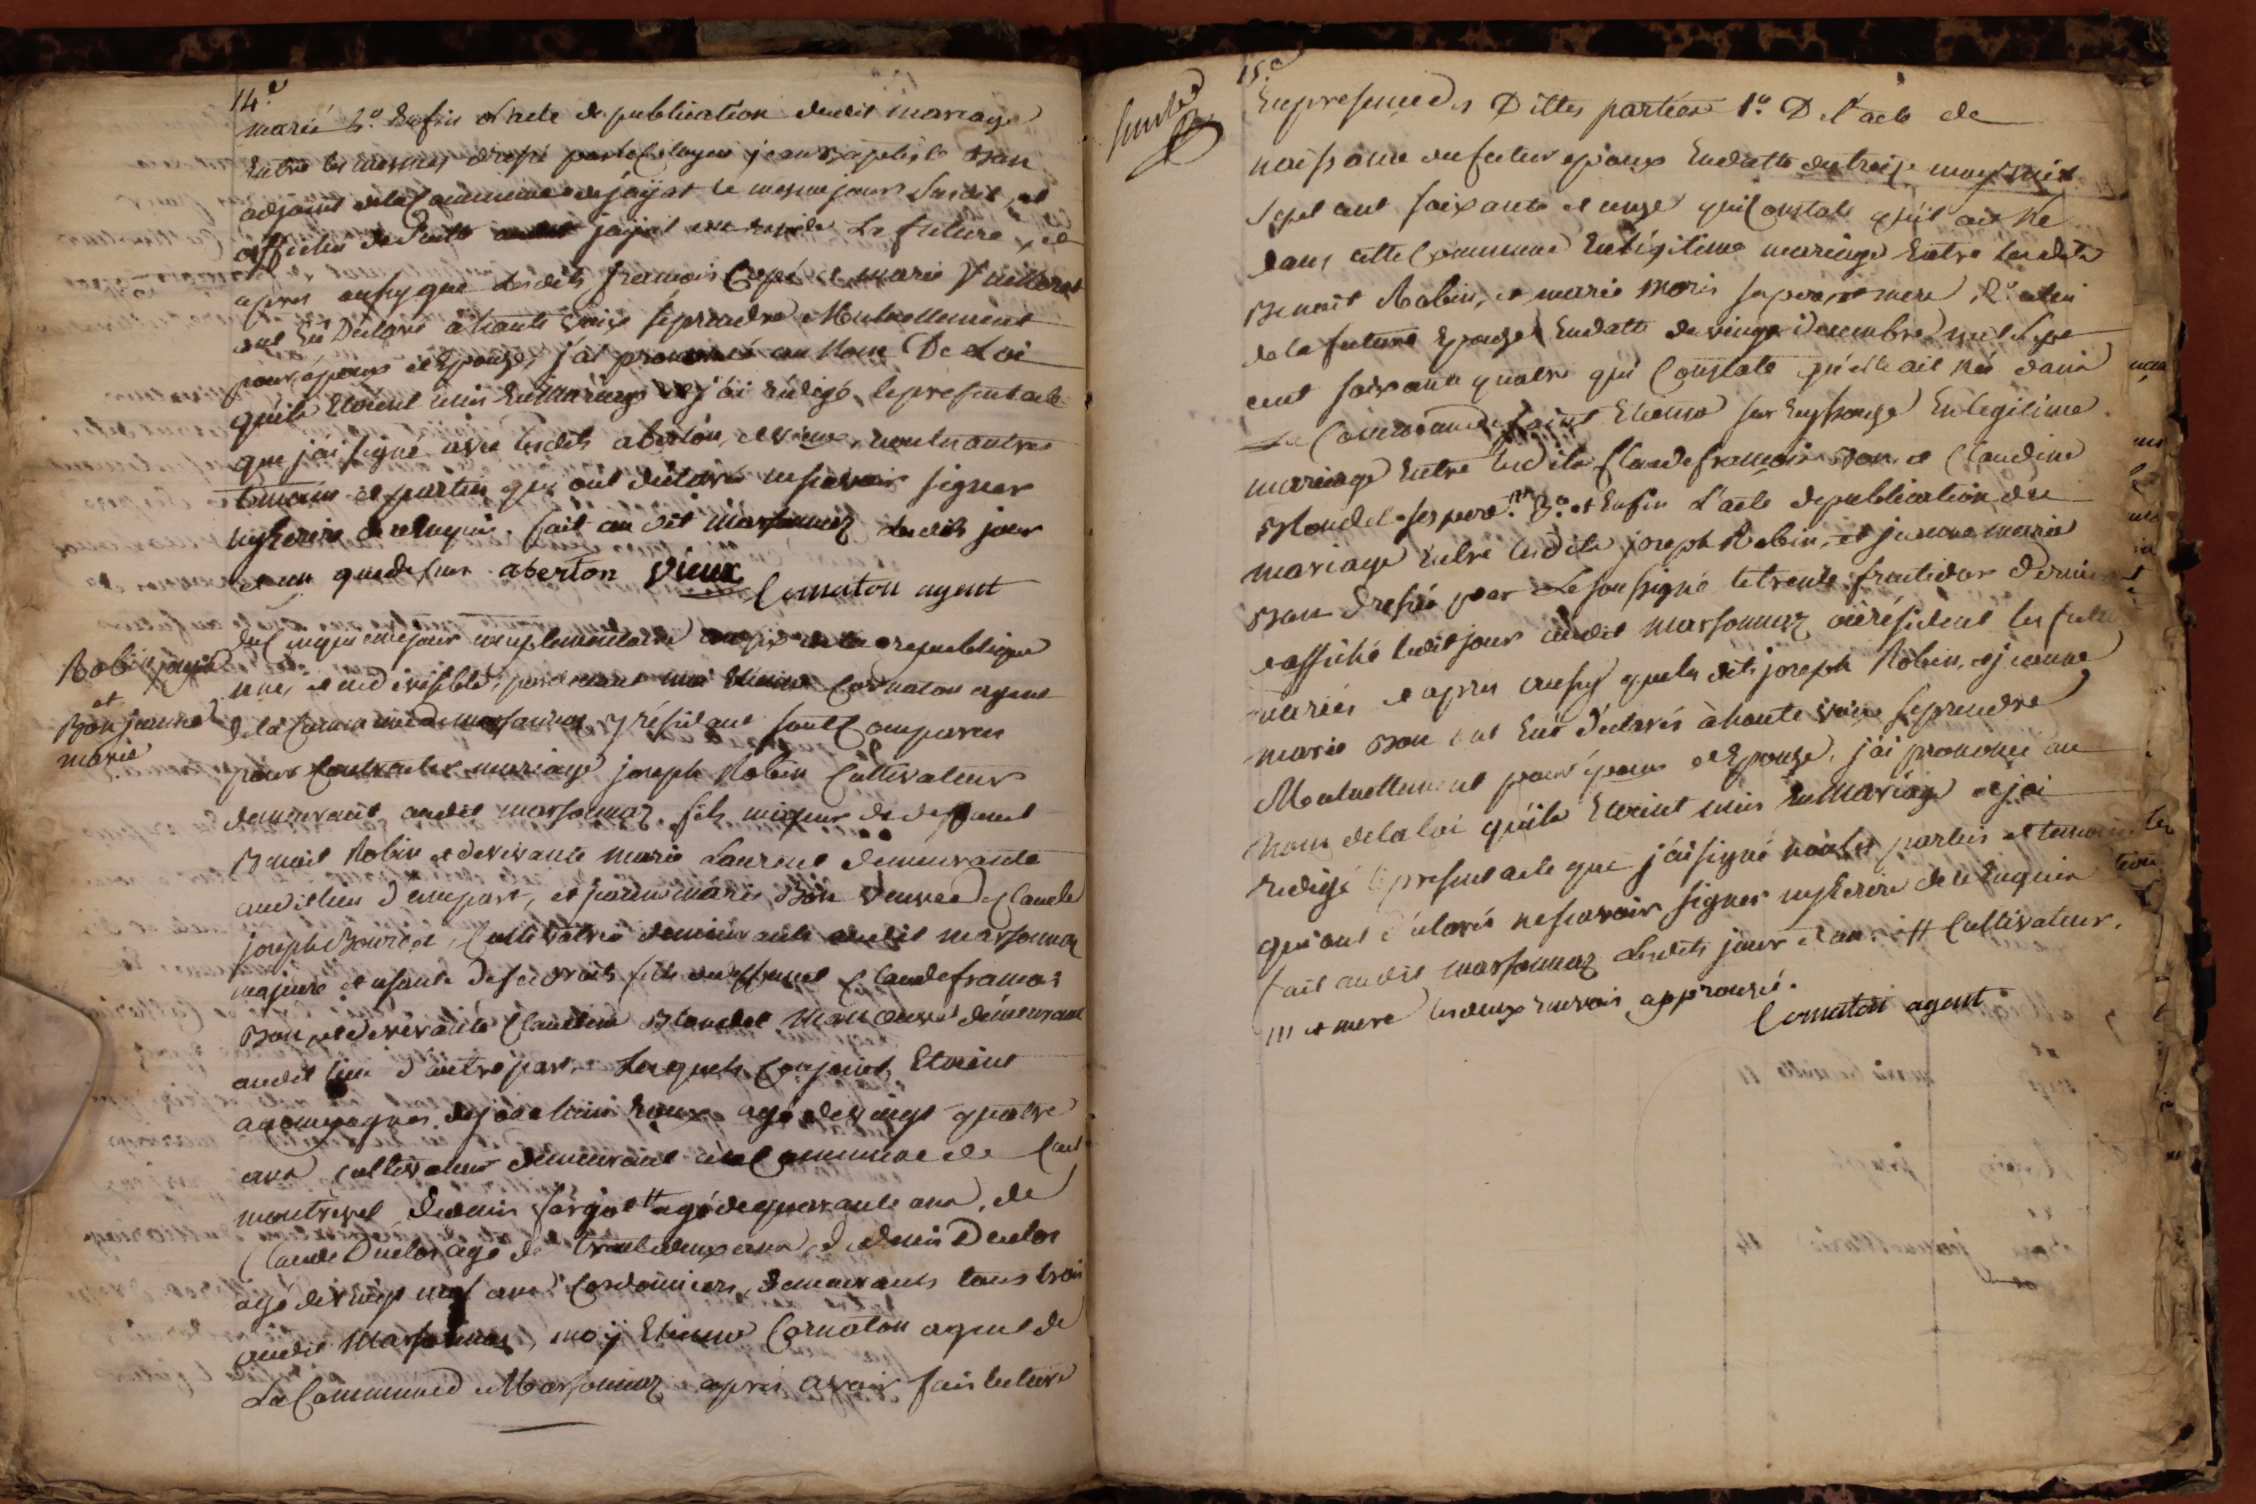 14.e
marié 2.o Enfin l'acte de publication dudit mariage
Entre les mesmes dressé par le Citoyen jean Baptiste Bon
adjoint de la Commune de jayat le mesme jour susdit, et
affichée de suite audit jayat ou reside La future, et
apres aussy que lesdits françois Capé et marie Vuillerot
ont Eu Déclaré à haute voix se prendre Mutuellement
pour epoux et Epouse, j'ai prononcé au Nom De la Loi
qu'ils Etoient unis En Mariage et j'ai rédigé le present acte
que j'ai signé avec lesdits aberton, et vieux, non les autres
temoins et parties qui ont déclaré ne savoir signer
ny Ecrire de ce Enquis. fait au dit marsonnaz lesdits jour
et an que dessus aberton Vieux
Cornaton agent
Robin joseph
et
Bon jeanne
marie
Du Cinquieme jour complementaire an six de la republique
une, et indivisible, pardevant moi Etienne Cornaton agent
de la Commune de marsonnaz y résidant sont Comparus
pour Contracter mariage joseph Robin Cultivateur
demeurant audit marsonnaz. fils mineur de deffunt
Benoit Robin et de vivante marie Laurent demeurante
audit lieu d'une part, et jeanne marie Bon veuve de Claude
joseph Bourcet, Cultivatrice demeurante audit marsonnaz
majeure et usante de ses droits fille de deffunt Claude françois
Bon, et de vivante Claudine Blondel Manoeuvre demeurant
audit lieu d'autre part. Lesquels Conjoints Etoient
accompagnés de joachim Roux agé de vingt quatre
ans cultivateur demeurant en la Commune de
montrevel, Denis fargot # agé de quarante ans, de
Claude Duclos agé de trente deux ans, de denis Duclos
agé de vingt neuf ans Cordonniers, demeurants tous trois
audit Marsonnaz, moy Etienne Cornaton agent de
La Commune de Marsonnaz apres avoir fait lecture
15.e
En presence des Dittes parties 1.o De l'acte de
naissance du futur epoux En datte du treize may mil
sept cent soixante et onze qui Constate qu'il est Né
dans cette Commune En légitime mariage Entre lesdits
Benoit Robin, et marie moris ses pere et mere 2.o celui
de la future Epouse En datte du vingt decembre mil sept
cent soixante quatre qui Constate qu'elle est née dans
La Commune de saint Etienne sur Reyssouze En legitime
mariage Entre lesdits Claude françois Bon et Claudine
Blondel ses pere III. 3.o et Enfin L'acte de publication du
mariage Entre lesdits joseph Robin, et jeanne marie
Bon dressé par Le soussigné le trente fructidor dernier
et affiché ledit jour audit marsonnaz où résident les futurs
mariés et apres aussy que les dits joseph Robin, et jeanne
marie Bon ont Eus déclarés à haute voix se prendre
Mutuellement pour époux et Epouse, j'ai prononcé au
Nom de la loi qu'ils Etoient unis En Mariage et j'ai
redigé le present acte que j'ai signé non les parties et temoins
qui ont déclaré ne savoir signer ny Ecrire de ce Enquis
fait audit marsonnaz Lesdits jour et an. # Cultivateur.
III et mere les deux renvois approuvés.
Cornaton agent